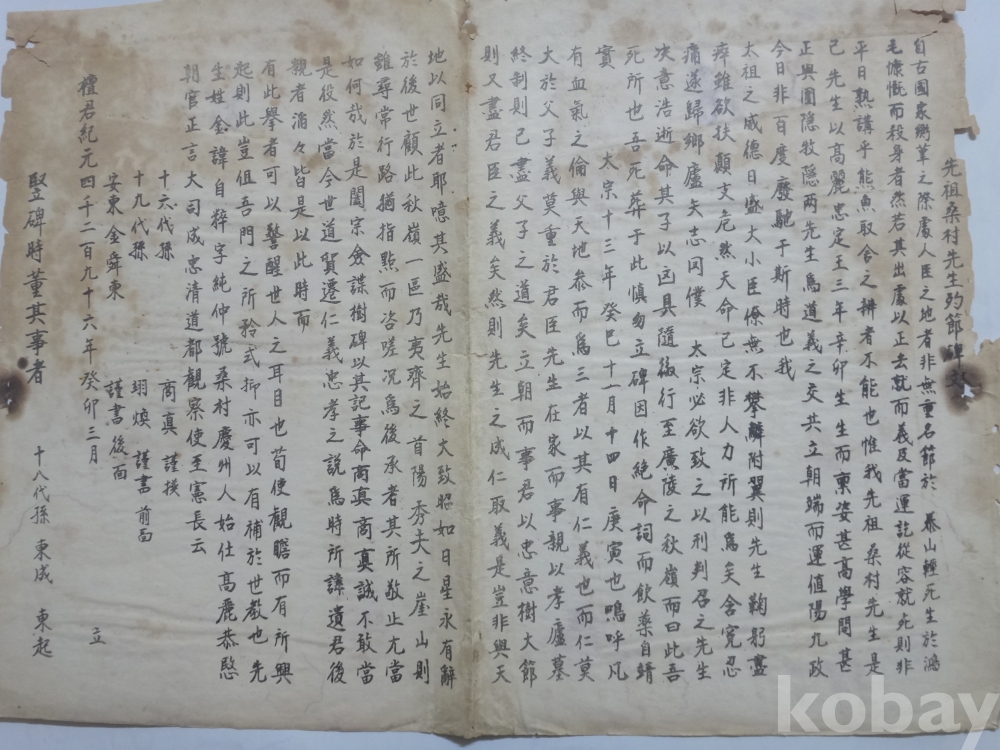 先祖桑村先生殉節碑文
自古國家鼎革之際處人臣之地者非無重名節於 泰山輕死生於鴻
毛慷慨而殺身者然若其出處以正去就而義及當運訖從容就死則非
平日熟講乎熊魚取舍之辨者不能也惟我先祖桑村先生是
已先生以高麗忠定王三年辛卯生生而稟姿甚高學問甚
正與圃隐牧隐两先生爲道義之交共立朝端而運值陽九政
今日非百度廢馳于斯時也我
太祖之威德日盛大小臣僚無不攀鱗附翼則先生鞠躬盡
瘁雖欲扶顚支危然天命已定非人力所能爲矣含寃忍
痛遂歸鄉廬矢志罔僕 太宗必欲致之以刑判召之先生
决意浩逝命其子以凶具隨後行至廣陵之秋嶺而曰此吾
死所也吾死葬于此愼勿立碑因作絶命詞而飲藥自靖
實 太宗十三年癸巳十一月十四日庚寅也嗚呼凡
有血氣之倫與天地叅而爲三者以其有仁義也而仁莫
大於父子義莫重於君臣先生在家而事親以孝廬墓
終制則已盡父子之道矣立朝而事君以忠意樹大節
則又盡君臣之義矣然則先生之成仁取義是豈非與天
地以同立者耶噫其盛哉先生始終大致昭如日星永有辭
於後世顧此秋嶺一區乃夷齊之首陽秀夫之崖山則
雖尋常行路猶指點而咨嗟况爲後承者其所敬止尤當
如何哉於是闔宗僉謀樹碑以其記事命商眞商眞誠不敢當
是役然當今世道貿遷仁義忠孝之說爲時所諱遺君後
親者滔々皆是以此時而
有此擧者可以警醒世人之耳目也苟使觀瞻而有所興
起則此豈但吾門之所矜式抑亦可以有補於世教也先
生姓金諱自粹字純仲號桑村慶州人始仕高麗恭愍
朝官正言大司成忠清道都觀察使至憲長云
十六代孫 商眞 謹撰
十九代孫 翊煥 謹書前面
安東金舜東 謹書後面
檀君紀元四千二百九十六年癸卯三月 立
竪碑時董其事者 十八代孫 東成 東起
kobay